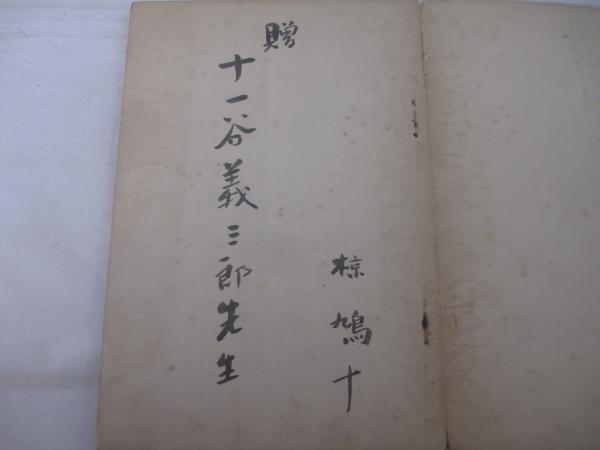 贈
十一谷義三郎先生
椋鳩十